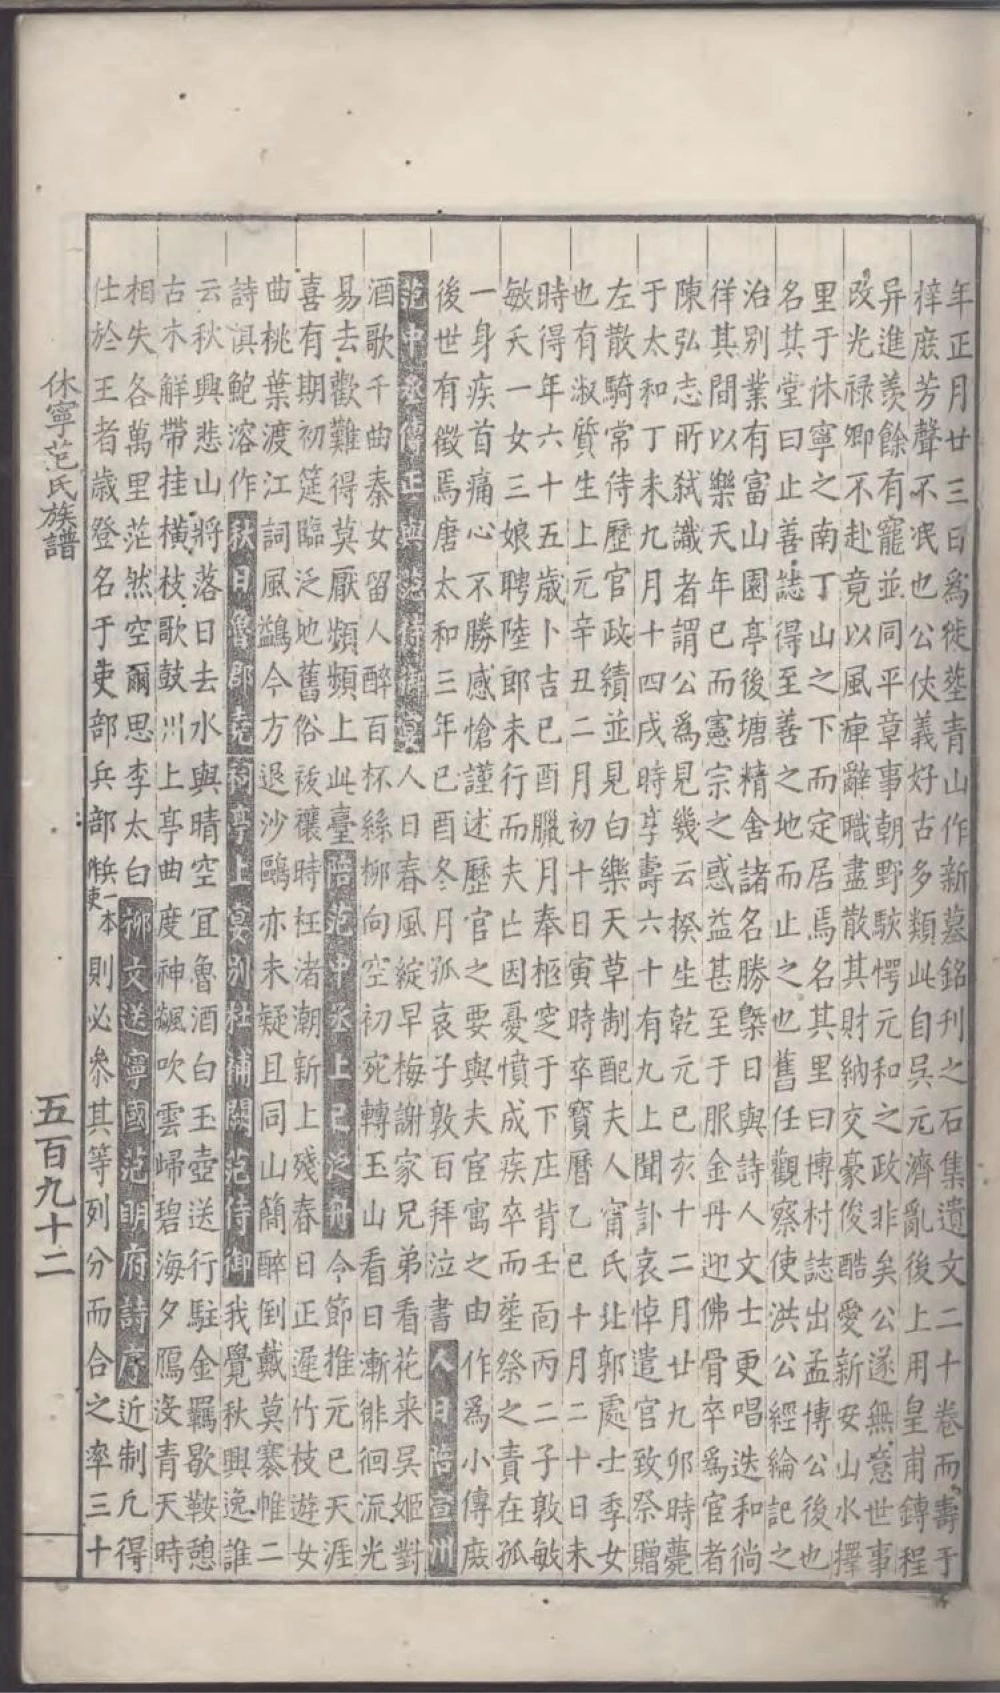 年正月廿三日爲徙塟青山作新墓銘刊之石集遺文二十卷而壽于
梓庶芳聲不泯也公仗義好古多類此自吴元濟亂後上用皇甫鏄程
异進羡餘有寵並同平章事朝野駭愕元和之政非矣公遂無意世事
改光禄卿不赴竟以風痺辭職盡散其財納交豪俊酷愛新安山水擇
里于休寧之南丁山之下而定居焉名其里曰博村誌出孟博公後也
名其堂曰止善誌得至善之地而止之也舊任觀察使洪公經綸記之
治別業有富山園亭後塘精舍諸名勝槩日與詩人文士更唱迭和徜
徉其間以樂天年已而憲宗之惑益甚至于服金丹迎佛骨卒爲宦者
陳弘志所弑識者謂公爲見幾云揆生乾元己亥十二月廿九卯時薨
于太和丁未九月十四戌時享壽六十有九上聞訃哀悼遣官致祭贈
左散騎常侍歷官政績並見白樂天草制配夫人甯氏北郭處士季女
也有淑質生上元辛丑二月初十日寅時卒寳曆乙巳十月二十日未
時得年六十五歳卜吉己酉臘月奉柩窆于下庄背壬面丙二子敦敏
敏夭一女三娘聘陸郎未行而夫亡因憂憤成疾卒而塟祭之責在孤
一身疾首痛心不勝感愴謹述歷官之要與夫宦寓之由作爲小傳庶
後世有徵焉唐太和三年己酉冬月孤哀子敦百拜泣書人日陪宣州
范中丞傳正與范侍御宴人日春風綻早梅謝家兄弟看花来吴姬對
酒歌千曲秦女留人醉百杯絲柳向空初宛轉玉山看日漸徘徊流光
易去歡難得莫厭頻頻上此臺陪范中丞上巳泛舟令節推元巳天涯
喜有期初筵臨泛地舊俗祓禳時枉渚潮新上殘春日正遲竹枝遊女
曲桃葉渡江詞風鷁今方退沙鷗亦未疑且同山簡醉倒戴莫褰帷二
詩俱鮑溶作秋日魯郡堯祠亭上宴別杜補闕范侍御我覺秋興逸誰
云秋興悲山將落日去水與晴空宜魯酒白玉壺送行駐金羈歇鞍憩
古木解帶挂橫枝歌鼓川上亭曲度神飇吹雲歸碧海夕鴈没青天時
相失各萬里茫然空爾思李太白柳文送寧國范明府詩序近制凡得
仕於王者歳登名于吏部兵部兵一本作吏則必叅其等列分而合之率三十
休寧范氏族譜
五百九十二